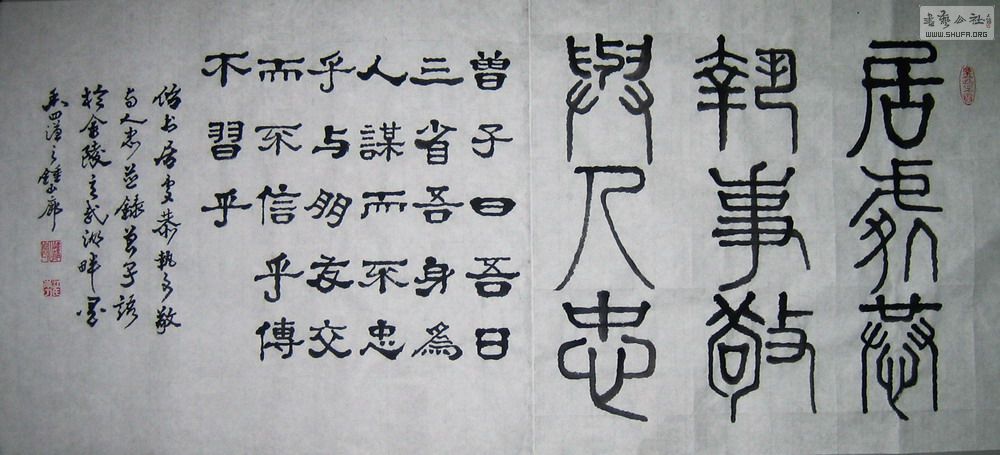 居處恭
執事敬
與人忠
曾子曰吾日
三省吾身爲
人謀而不忠
乎与朋友交
而不信乎傳
不習乎
书居處恭執事敬
与人忠並錄曾子語
於金陵玄武湖畔墨
香四溢之鍾山廊
書藝公社
WWW.SHUFA.ORG